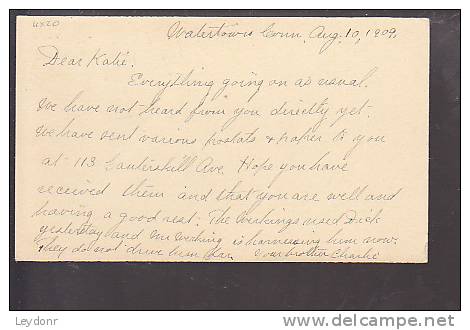 4x20
Watertown Conn. Aug. 10, 1909.
Dear Katie.
Everything going on as usual.
We have not heard from you directly yet.
We have sent various postals & paper to you
at 113 Ave. Hope you have
received them and that you are well and
having a good rest. The used Dick
yesterday and Mr is harnessing him now.
They do not drive him Your brother Charlie
Leydonr
www.delcampe.net